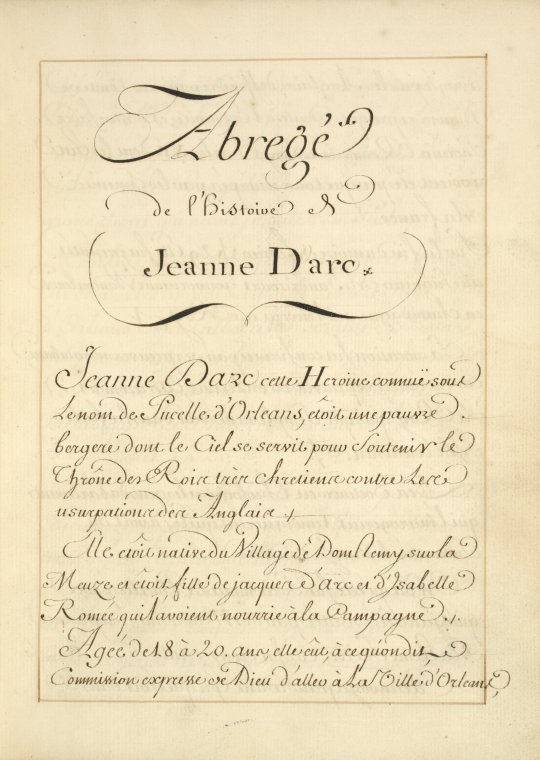 Abregé
de l'histoire de
Jeanne Darc.
Jeanne Darc cette Heroine connuë sous
Le nom de Pucelle d'Orleans, étoit une pauvre
bergere dont le Ciel se servit pour Soutenir le
Thrône des Rois très chretiens contre Les
usurpations des Anglais.
Elle étoit native du Village de Domremy sur la
Meuze et étoit fille de jacques d'arc et d'Isabelle
Romée qui l'avoient nourrie à la Campagne.
Agée de 18 à 20. ans, elle eût, à ce qu'on dit,
Commission expresse de Dieu d'aller à La Ville d'Orleans,